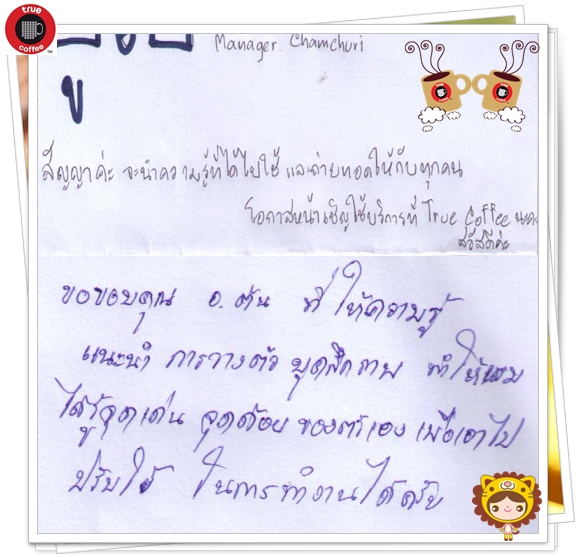 true
coffee
Manager. Chamchuri
สัญญาค่ะ จะนำความรู้ที่ได้ไปใช้ และถ่ายทอดให้กับทุกคน
โอกาสหน้าเชิญใช้บริการที่ True Coffee นะคะ
สวัสดีค่ะ
ขอขอบคุณ อ.ต้น ที่ให้ความรู้
แนะนำ การวางตัว บุคลิกภาพ ทำให้ผม
ได้รู้จุดเด่น จุดด้อย ของตัวเอง เพื่อเอาไป
ปรับใช้ ในการทำงานได้ครับ